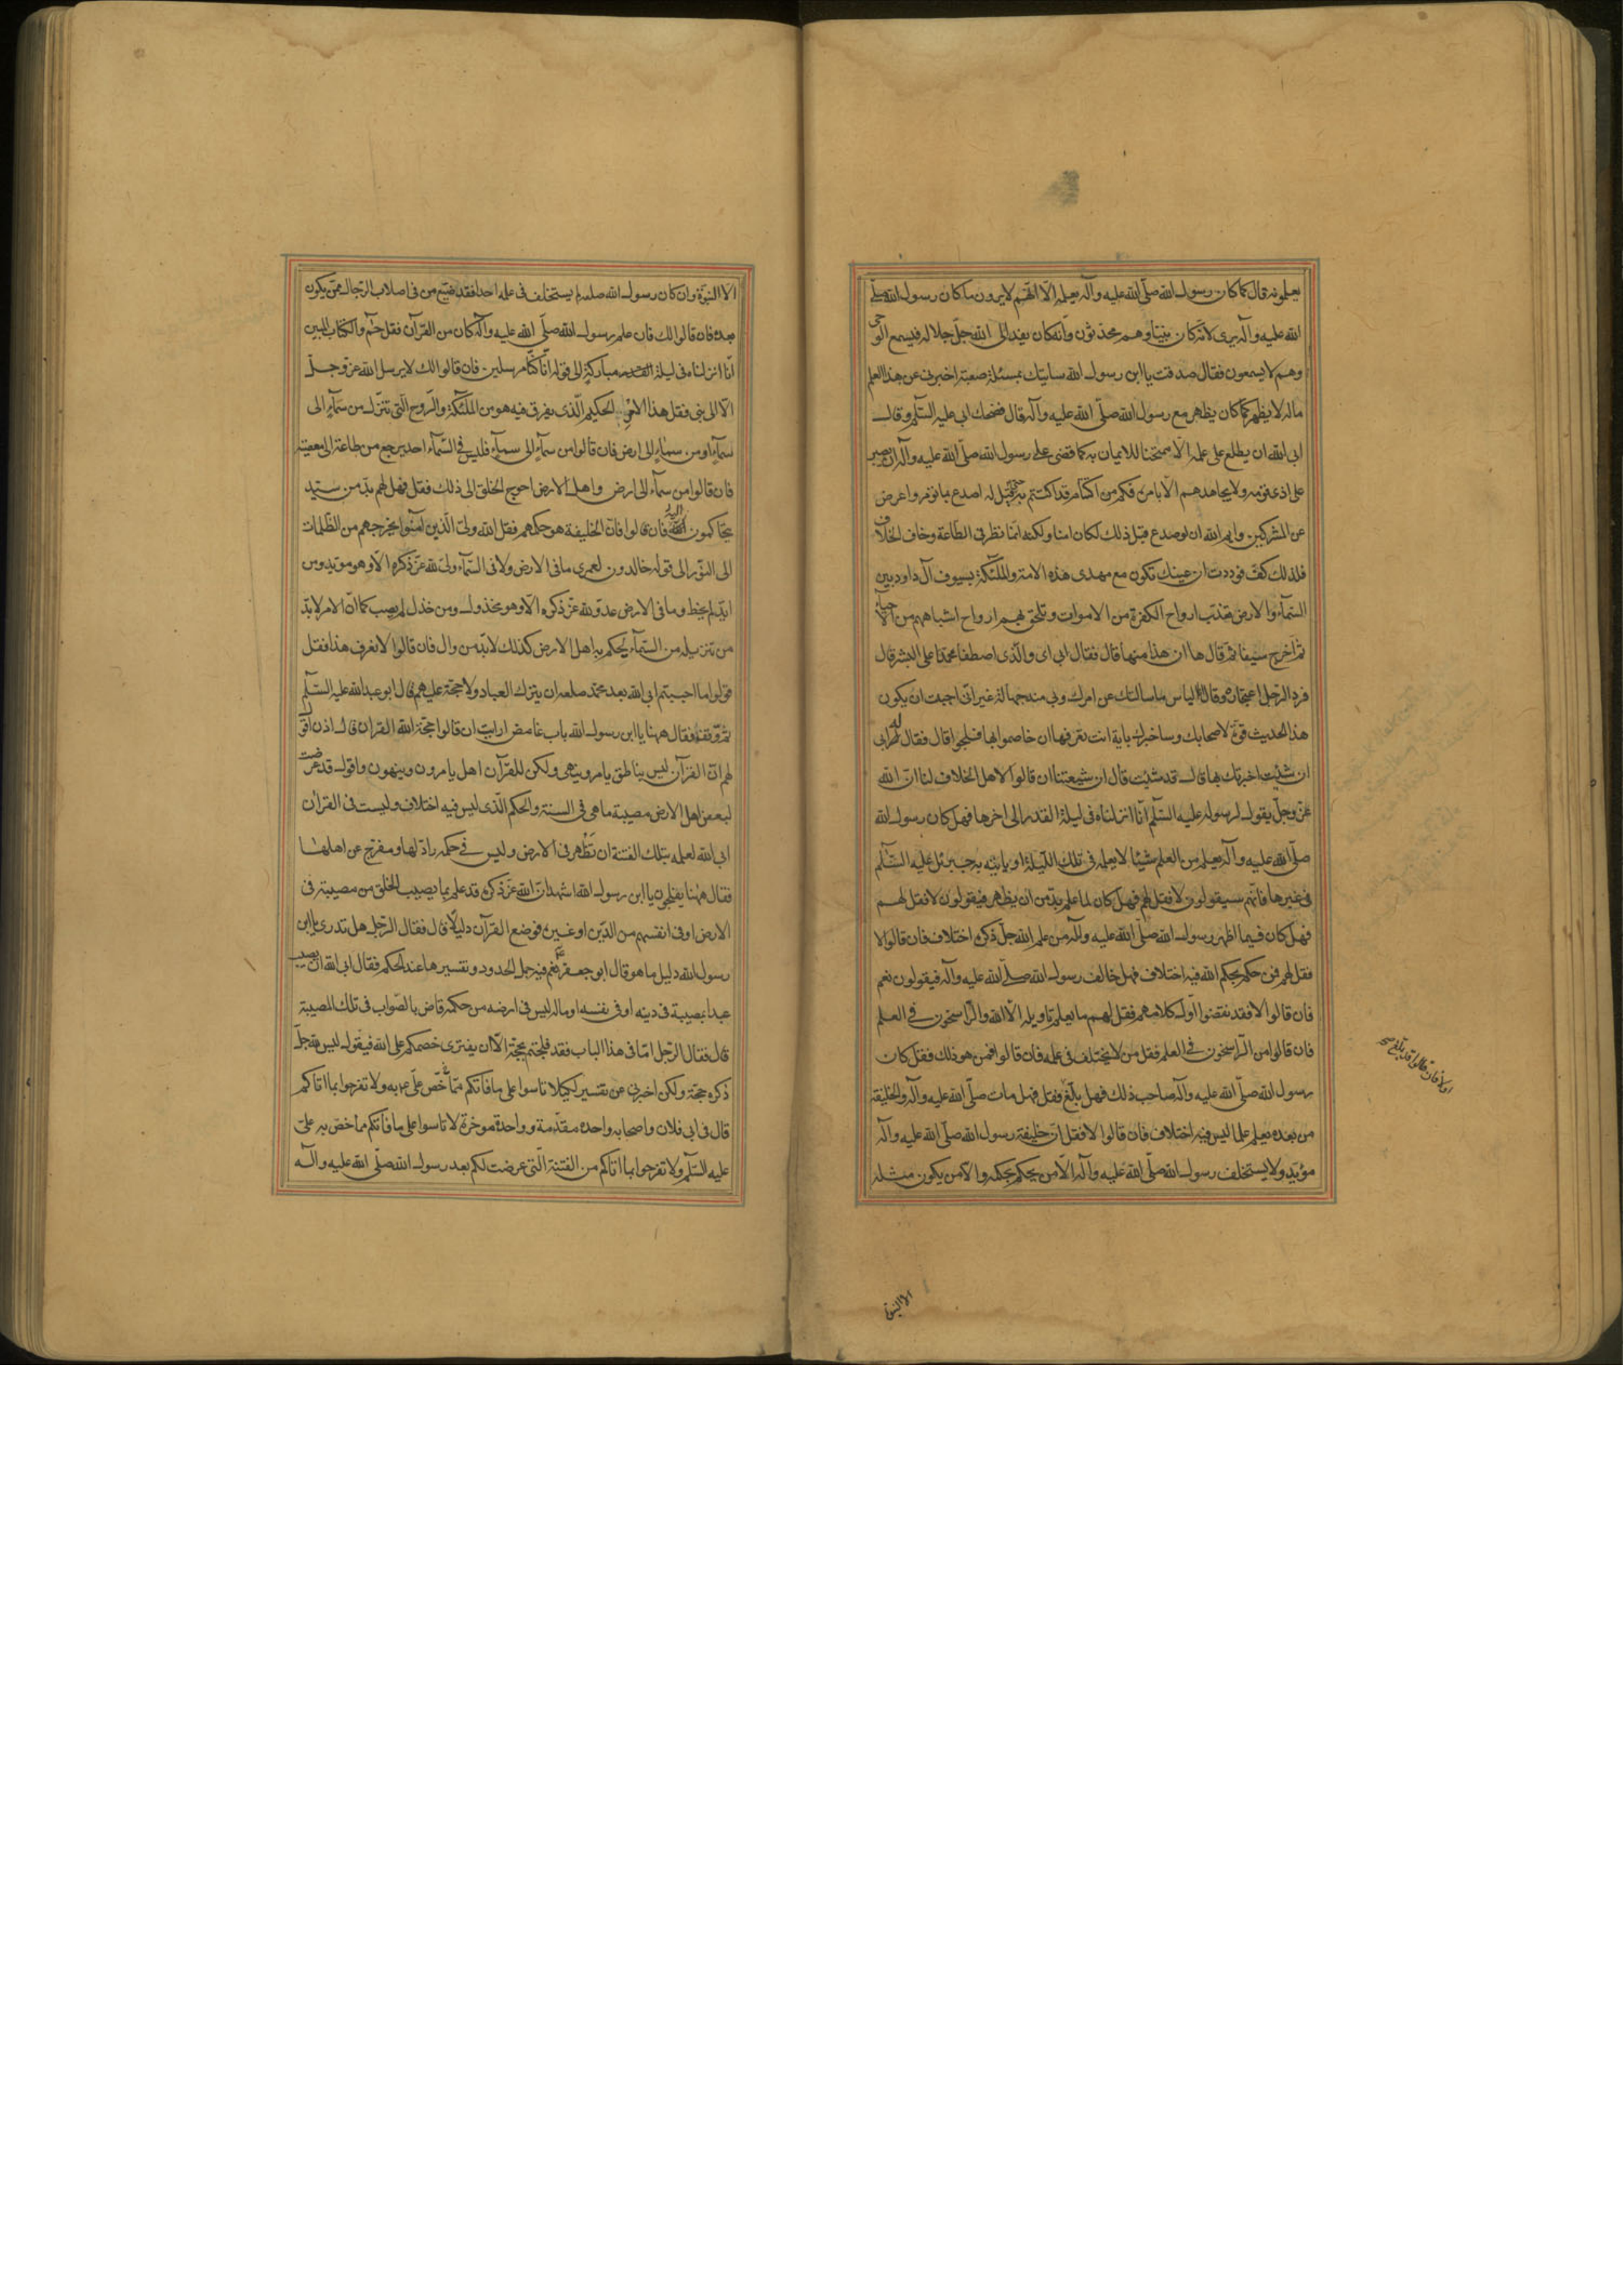 يعلمونه قال كما كان رسول الله صلّى الله عليه وآله يعلمه الّا انّهم لا يرون ما كان رسول الله صلّى
الله عليه وآله يرى لانّه كان نبيّا وهم محدّثون وانّه كان يفد الى الله جلّ جلاله فيسمع الوحى
وهم لا يسمعون فقال صدقت يا ابن رسول الله سآتيك بمسئلة صعبة اخبرنى عن هذا العلم
ماله لا يظهر كما كان يظهر مع رسول الله صلّى الله عليه وآله قال فضحك ابى عليه السّلم وقال
ابى الله ان يطلع على علمه الّا ممتحنا للايمان به كما قضى على رسول الله صلّى الله عليه وآله ان يصبر
على اذى قومه ولا يجاهدهم الّا بامره فكم من اكتتام قد اكتتم به حتّى قيل له اصدع بما تؤمر واعرض
عن المشركين وايم الله ان لو صدع قبل ذلك لكان امنا ولكنه انّما نظر فى الطّاعة وخاف الخلاف
فلذلك كفّ فوددت ان عينك تكون مع مهدى هذه الامة والملئكة بسيوف آل داود بين
السّماء والارض تعذّب ارواح الكفرة من الاموات وتلحق بهم ارواح اشباههم من الاحياء
ثمّ اخرج سيفا ثمّ قال ها ان هذا منها قال فقال ابى اى والّذى اصطفا محمّدا على البشر قال
فردّ الرّجل اعتجاره وقال انا الياس ما سالتك عن امرك وبى منه جهالة غير انّى احببت ان يكون
هذا الحديث قوّة لاصحابك وساخبرك باية انت تعرفها ان خاصموا بها فلجوا قال فقال له ابى
ان شئت اخبرتك بها قال قد شئت قال ان شيعتنا ان قالوا لاهل الخلاف لنا انّ الله
عزّ وجلّ يقول لرسوله عليه السّلم انّا انزلناه فى ليلة القدر الى اخرها فهل كان رسول الله
صلّى الله عليه وآله يعلم من العلم شيئا لا يعلمه فى تلك اللّيلة او ياتيه به جبرئل عليه السّلم
فى غيرها فانّهم سيقولون لا فقل لهم فهل كان لما علم بدّ من ان يظهر فيقولون لا فقل لهم
فهل كان فيما اظهر رسول الله صلّى الله عليه وآله من علم الله جلّ ذكره اختلاف فان قالوا لا
فقل لهم فمن حكم بحكم الله فيه اختلاف فهل خالف رسول الله صلّى الله عليه وآله فيقولون نعم
فان قالوا لا فقد نقضوا اول كلامهم فقل لهم ما يعلم تاويله الّا الله والرّاسخون فى العلم
فان قالوا من الرّاسخون فى العلم فقل من لا يختلف فى علمه فان قالوا فمن هو ذلك فقل كان
رسول الله صلّى الله عليه وآله صاحب ذلك فهل بلّغ فقل فهل مات صلّى الله عليه وآله والخليفة
من بعده يعلم علما ليس فيه اختلاف فان قالوا لا فقل انّ خليفة رسول الله صلّى الله عليه وآله
مؤيّد ولا يستخلف رسول الله صلّى الله عليه وآله الّا من يحكم بحكمه والّا من يكون مثله
الا النبوة
الا النبوّة وان كان رسول الله صلعم لم يستخلف فى علمه احدا فقد ضيّع من فى اصلاب الرّجال ممّن يكون
بعده فان قالوا لك فان علم رسول الله صلّى الله عليه وآله كان من القرآن فقل حٰم والكتاب المبين
انّا انزلناه فى ليلة مباركة الى قوله انّا كنّا مرسلين فان قالوا لك لا يرسل الله عزّ وجلّ
الّا الى نبى فقل هذا الامر الحكيم الّذى يفرق فيه هو من الملئكة والرّوح الّتى تنزّل من سماء الى
سماء او من سماء الى ارض فان قالوا من سماء الى سماء فليس فى السّماء احد يرجع من طاعة الى معصية
فان قالوا من سماء الى ارض واهل الارض احوج الخلق الى ذلك فقل فهل لهم بدّ من سيّد
يتحاكمون اليه فان قالوا فانّ الخليفة هو حكمهم فقل الله ولىّ الّذين آمنوا يخرجهم من الظّلمات
الى النّور الى قوله خالدون لعمرى ما فى الارض ولا فى السّماء ولىّ لله عزّ ذكره الّا وهو مؤيد ومن
ايّد لم يخط وما فى الارض عدوّ لله عزّ ذكره الّا وهو مخذول ومن خذل لم يصب كما انّ الامر لا بدّ
من تنزيله من السّماء يحكم به اهل الارض كذلك لا بدّ من وال فان قالوا لا نعرف هذا فقل
قولوا ما احببتم ابى الله بعد محمّد صلعم ان يترك العباد ولا حجّة عليهم قال ابو عبد الله عليه السّلم
ثمّ وقف فقال ههنا يا ابن رسول الله باب غامض ارايت ان قالوا حجّة الله القران قال اذن اقول
لهم انّ القرآن ليس بناطق يامر وينهى ولكن للقرآن اهل يامرون وينهون واقول قد عرضت
لبعض اهل الارض مصيبة ما هى فى السنة والحكم الّذى ليس فيه اختلاف وليست فى القران
ابى الله لعلمه بتلك الفتنة ان تظهر فى الارض وليس فى حكمه رادّ لها ومفرّج عن اهلها
فقال ههنا يفلجون يا ابن رسول الله اشهد انّ الله عزّ ذكره قد علم بما يصيب الخلق من مصيبة فى
الارض او فى انفسهم من الدّين او غيره فوضع القرآن دليلا قال فقال الرّجل هل تدرى يا ابن
رسول الله دليل ما هو قال ابو جعفر نعم فيه جمل الحدود وتفسيرها عند الحكم فقال ابى الله ان يصيب
عبدا بمصيبة فى دينه او فى نفسه او ماله ليس فى ارضه من حكمه قاض بالصّواب فى تلك المصيبة
قال فقال الرّجل امّا فى هذا الباب فقد فلجتم بحجّة الّا ان يفترى خصمكم على الله فيقول ليس لله جلّ
ذكره حجّة ولكن اخبرنى عن تفسير لكيلا تاسوا على ما فاتكم ممّا خصّ علىّ به ولا تفرحوا بما اتاكم
قال فى ابى فلان واصحابه واحدة مقدّمة وواحدة موخرة لا تاسوا على ما فاتكم مما خصّ به على
عليه السّلم ولا تفرحوا بما اتاكم من الفتنة الّتى عرضت لكم بعد رسول الله صلّى الله عليه وآله